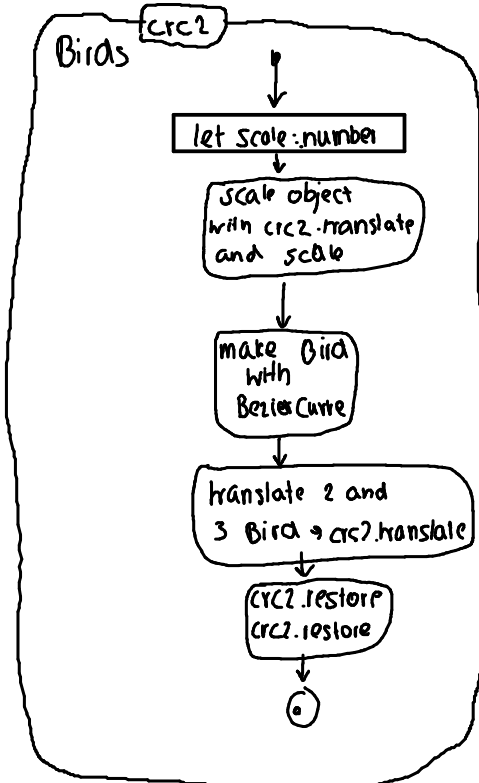 crc2
Birds
let scale:number
scale object
with crc2.translate
and scale
make Bird
with
BezierCurve
translate 2 and
3 Bird → crc2.translate
crc2.restore
crc2.restore